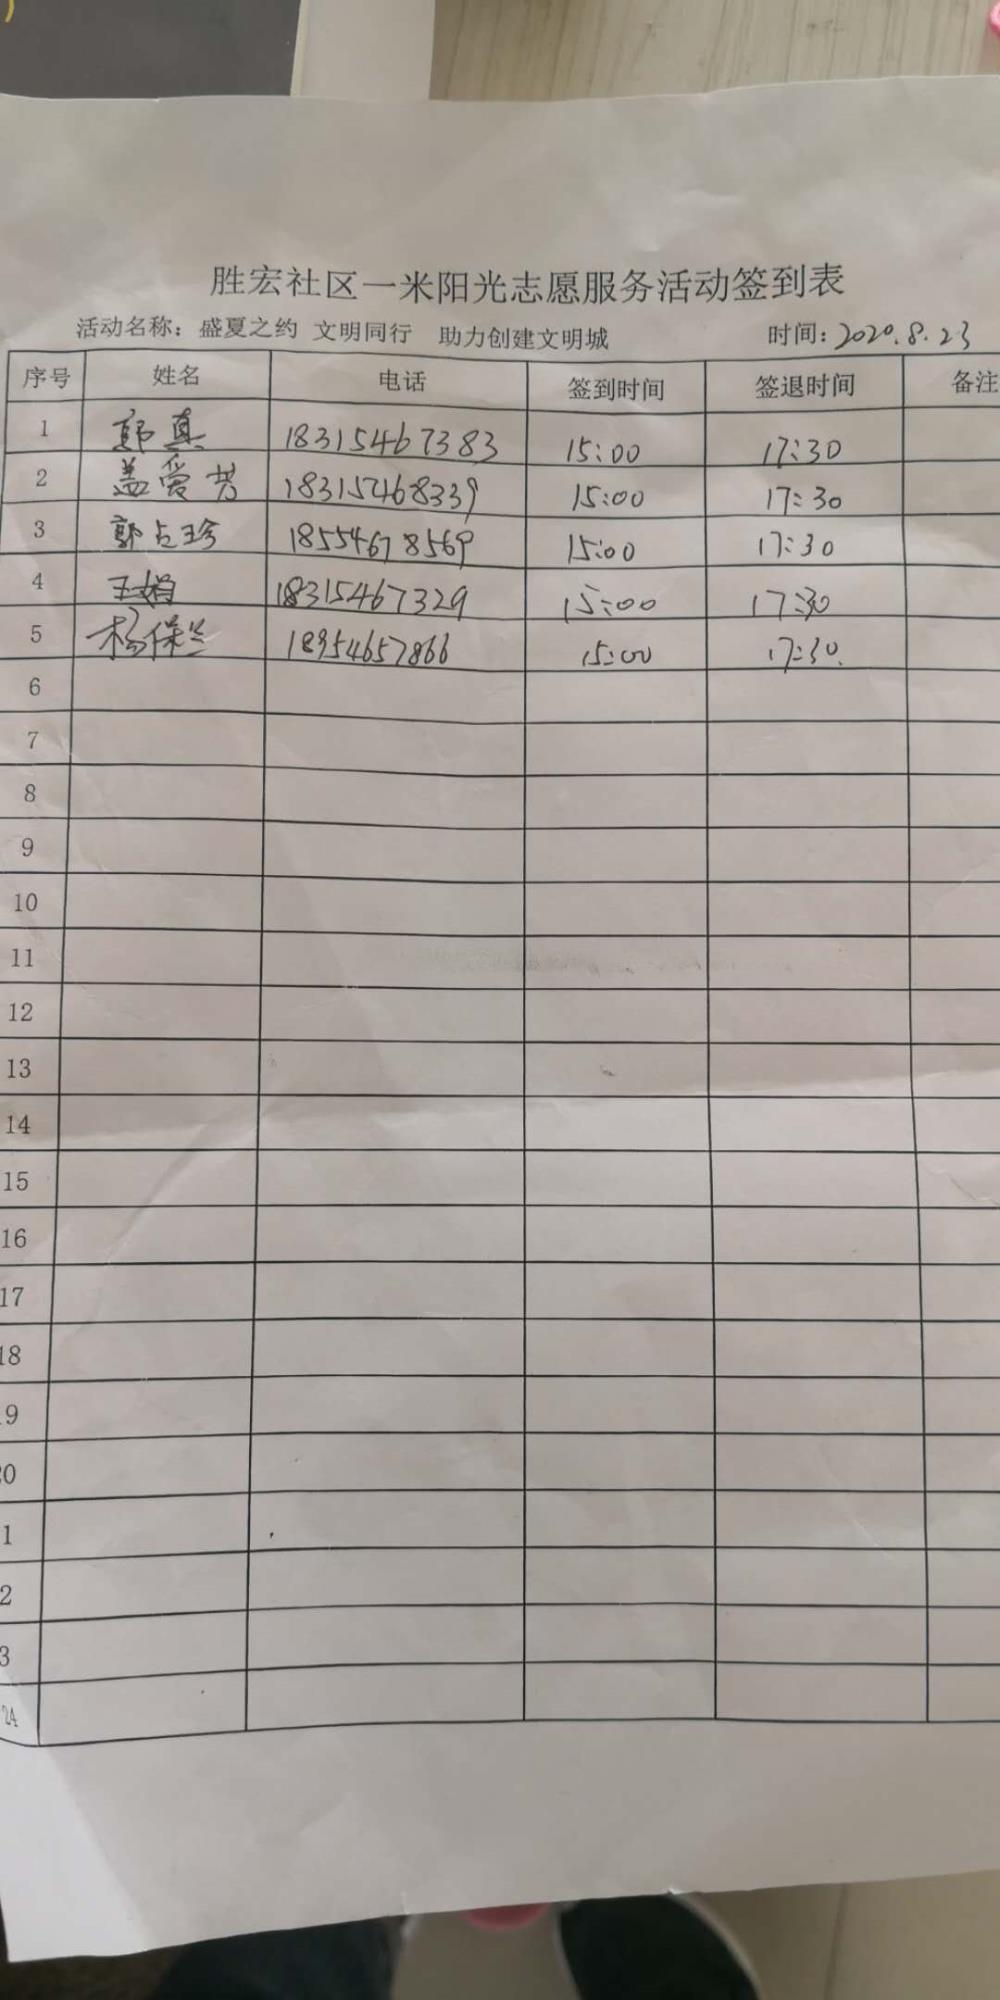 胜宏社区一米阳光志愿服务活动签到表
活动名称：盛夏之约 文明同行 助力创建文明城 时间：2020.8.23
序号 姓名 电话 签到时间 签退时间 备注
1 郭真 18315467383 15:00 17:30
2 盖爱芳 183157468339 15:00 17:30
3 郭占珍 18554678569 15:00 17:30
4 王娟 18315467329 15:00 17:30
5 杨保兰 18954657866 15:00 17:30
6
7
8
9
10
11
12
13
14
15
16
17
18
19
20
1
2
3
24